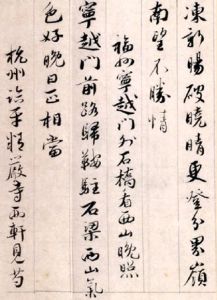 凍新暘破曉晴更登分界嶺
南望不勝情
福州寧越門外石橋看西山晚照
寧越門前路歸鞍駐石梁西山氣
色好晚日正相當
杭州臨平精嚴寺西軒見芍